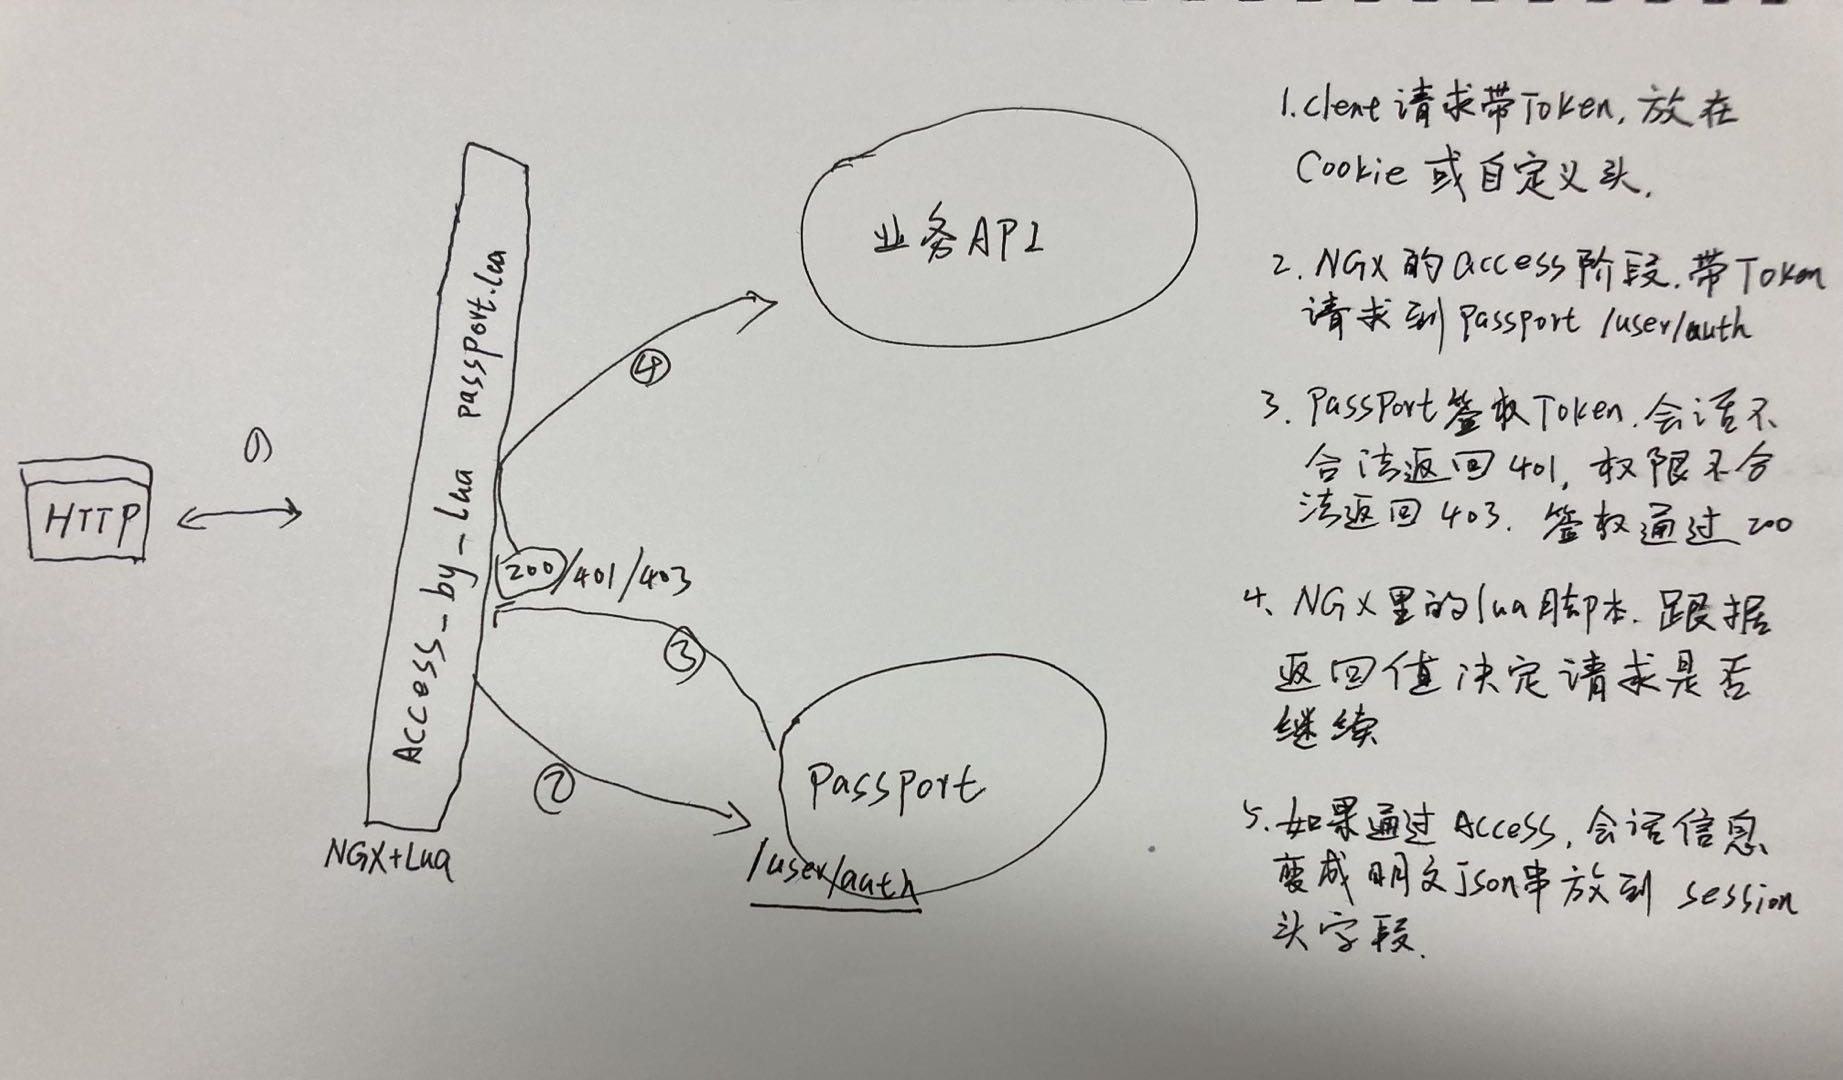 HTTP
①
Access_by_lua passport.lua
NGX+Lua
业务API
④
200/401/403
③
②
Passport
/user/auth
1.Clent请求带Token,放在
Cookie或自定义头.
2.NGX的access阶段.带Token
请求到passport /user/auth
3.Passport签权Token.会话不
合法返回401,权限不合
法返回403.签权通过200
4、NGX里的lua脚本.跟据
返回值决定请求是否
继续
5.如果通过Access,会话信息
变成明文json串放到session
头字段.